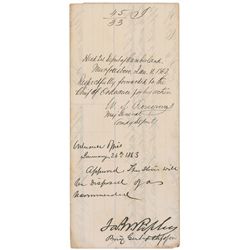 45 I
33
Head Qrs Dept of Cumberland
Murfreesboro, Jan. 11, 1863
Respectfully forwarded to the
Chief of Ordnance for his action
W. S. Rosecrans
Maj General
Comdg Dept
Ordnance Office
January 20th 1863
Approved The stores will
be disposed of as
recommended
Jas W Ripley
Brig Genl